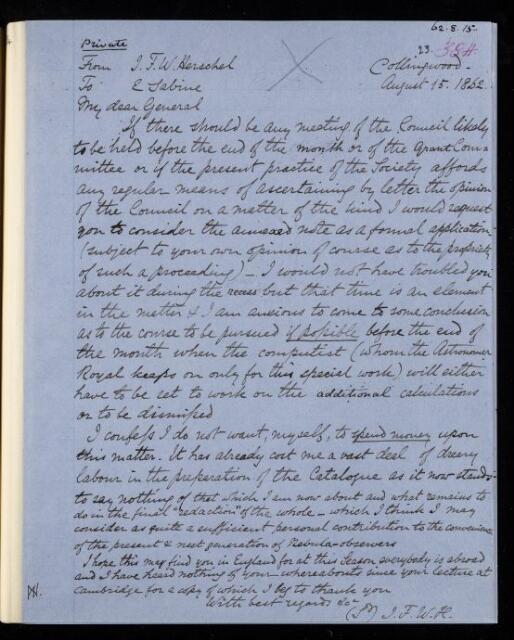 62.8.15.
Private
23.
From J.F.W. Herschel
Collingwood.
To E Sabine
August 15. 1862
My dear General
If there should be any meeting of the Council likely
to be held before the end of the month or of the Grant Com-
mittee or if the present practice of the Society affords
any regular means of ascertaining by letter the opinion
of the Council on a matter of the kind I would request
you to consider the annexed note as a formal application
(subject to your own opinion of course as to the propriety
of such a proceeding) _ I would not have troubled you
about it during the recess but that time is an element
in the matter & I am anxious to come to some conclusion
as to the course to be pursued if possible before the end of
the month when the computist (whom the Astronomer
Royal keeps on only for this special work) will either
have to be set to work on the additional calculations
or to be dismissed
I confess I do not want, myself, to spend money upon
this matter. It has already cost me a vast deal of dreary
labour in the preparation of the Catalogue as it now stands
to say nothing of that which I am now about and what remains to
do in the final "redaction" of the whole _ which I think I may
consider as quite a sufficient personal contribution to the convenience
of the present & next generation of Nebula-observers
I hope this may find you in England for at this Season everybody is abroad
and I have heard nothing of your whereabouts since your lecture at
Cambridge for a copy of which I beg to thank you
With best regards &c
(Sd) J.F.W.H.